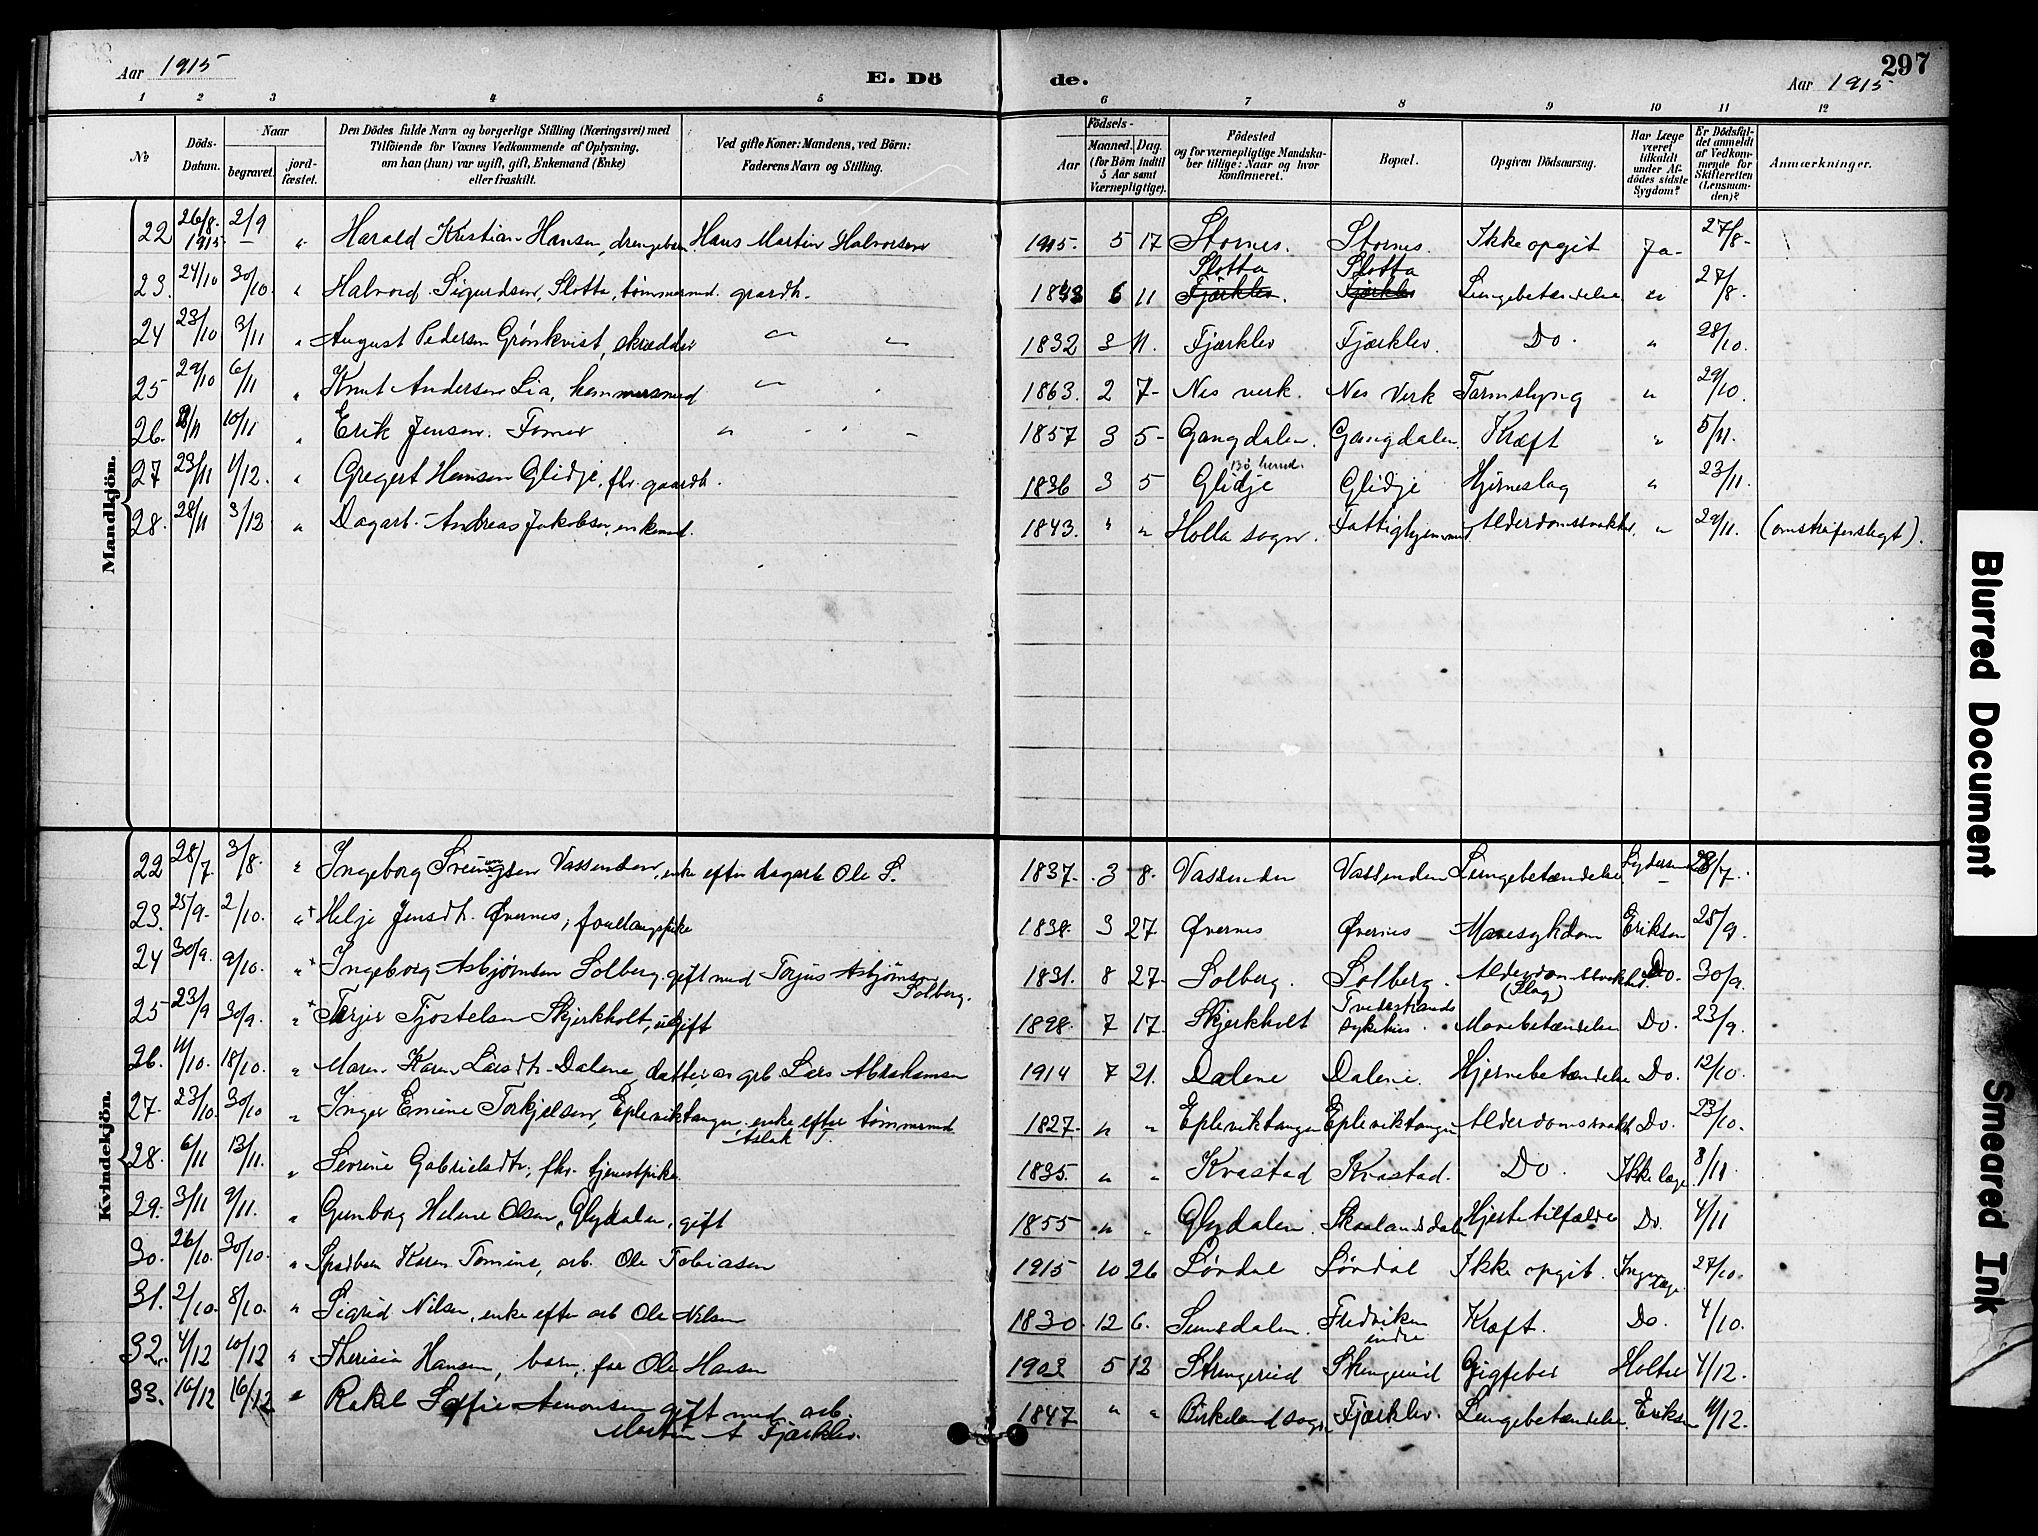 Aar 1915
E. Dö
de.
297
Aar 1915
1 2 3 4 5 6 7 8 9 10 11 12
No
Döds-Datum.
Naar
begravet.
jord-fæstet.
Den Dödes fulde Navn og borgerlige Stilling (Næringsvei) med
Tilföiende for Voxnes Vedkommende af Oplysning,
om han (hun) var ugift, gift, Enkemand (Enke)
eller fraskilt.
Ved gifte Koner: Mandens, ved Börn:
Faderens Navn og Stilling.
Födsels-
Aar
Maaned. Dag.
(for Börn indtil
5 Aar samt
Værnepligtige).
Födested
og for værnepligtige Mandska-
ber tillige: Naar og hvor
konfirmeret.
Bopæl.
Opgiven Dödsaarsag.
Har Læge
været
tilkaldt
under Af-
dödes sidste
Sygdom?
Er Dödsfal-
det anmeldt
af Vedkom-
mende for
Skifteretten
(Lensman-
den)?
Anmærkninger.
Mandkjön.
22 26/8 1915 2/9 " Harald Kristian Hansen, drengebarn Hans Martin Halvorsen 1915. 5 17 Stornes. Stornes. Ikke opgit Ja- 27/8-
23. 24/10 30/10. " Halvord Sigurdsen, Slotta, tømmermd. gaardb. 1843 6 11 Slotta Fjærklev. Slotta Fjærklev Lungebetændelse " 27/8-
24 23/10 3/11 " August Pedersen Grönkvist, skrædder " " 1832 3 11. Fjærklev Fjærklev. Do. " 28/10.
25 29/10 6/11 " Knut Andersen Lia, hammersmed " 1863. 2 7- Nes verk. Nes Verk Tarmslyng " 29/10.
26. 10/11 " Erik Jensen " " 1857 3 5- Gangdalen. Gangdalen. Kræft " 5/11.
27 23/11 1/12. " Gregert Hansen Glidje, fhv. gaardb. 1836 3 5 Glidje Glidje Hjerneslag " 23/11.
28. 28/11 3/12 " Dagarb. Andreas Jakobsen, enkemd. 1843. " " Holla sogn. Fattighjemmet Alderdomssvakhet. " 29/11. (omstreiferslegt).
Kvindekjön.
22 28/7 3/8. " Ingeborg Vassenden, enke efter dagarb. Ole S. 1837. 3 8. Vassenden Vassenden Lungebetændelse 28/7.
23. 25/9. 2/10. " Helje Jensdtr. Øvernes, 1838. 3 27 Øvernes Øvernes Mavesykdom Eriksen 25/9.
24 30/9. 9/10. " Ingeborg Asbjørnsen Solberg, gift med Torjus Asbjørnsen Solberg. 1831. 8 27- Solberg. Solberg. Alderdomssvakhet (Slag) Do. 30/9.
25 23/9 30/9. " Terjer Tjostelsen Skjerkholt, ugift 1898. 7 17. Skjerkholt Tvedestrands sykehus. Mavebetændelse Do. 23/9.
26. 11/10. 18/10. " Maren Karen Larsdtr. Dalene, datter av grb. Lars Abrahamsen 1914 7 21. Dalene Dalene. Hjernebetændelse Do. 12/10.
27. 23/10. 30/10 " Inger Emine Torkjelsen, Epleviktangen, enke efter tømmermd Aslak T. 1827. " " Epleviktangen Epleviktangen Alderdomssvakh. Do. 23/10.
28. 6/11 13/11. " Serine Gabrielsdtr., fhv. tjenestpike 1835. " " Kvastad Kvastad. Do. Ikke læge 8/11
29. 3/11 9/11. " Gunborg Helene Olsen, Glydalen, gift 1855 " " Glydalen. Skaalandsdalen Hjertetilfælde Do. 4/11
30. 26/10. 30/10. " Spædbarn Karen Tomine, arb. Ole Tobiasen 1915 10 26 Lørdal Lørdal Ikke opgit. Ingen læge 27/10.
31. 2/10. 8/10. " Sigrid Nilsen, enke efter arb Ole Nilsen 1830. 12 6. Sunsdalen. Fredviken indre Kræft. Do. 4/10.
32. 4/12 10/12 " Theresia Hansen, barn, far Ole Hansen 1903 5 12 Strengereid Strengereid Gigtfeber Holter 4/12.
33. 10/12 16/12 " Rakel Soffie Amonsen gift med arb. Martin A Fjærklev. 1847 " " Birkeland sogn Fjærklev. Lungebetændelse Eriksen 11/12.
Blurred Document
Smeared Ink